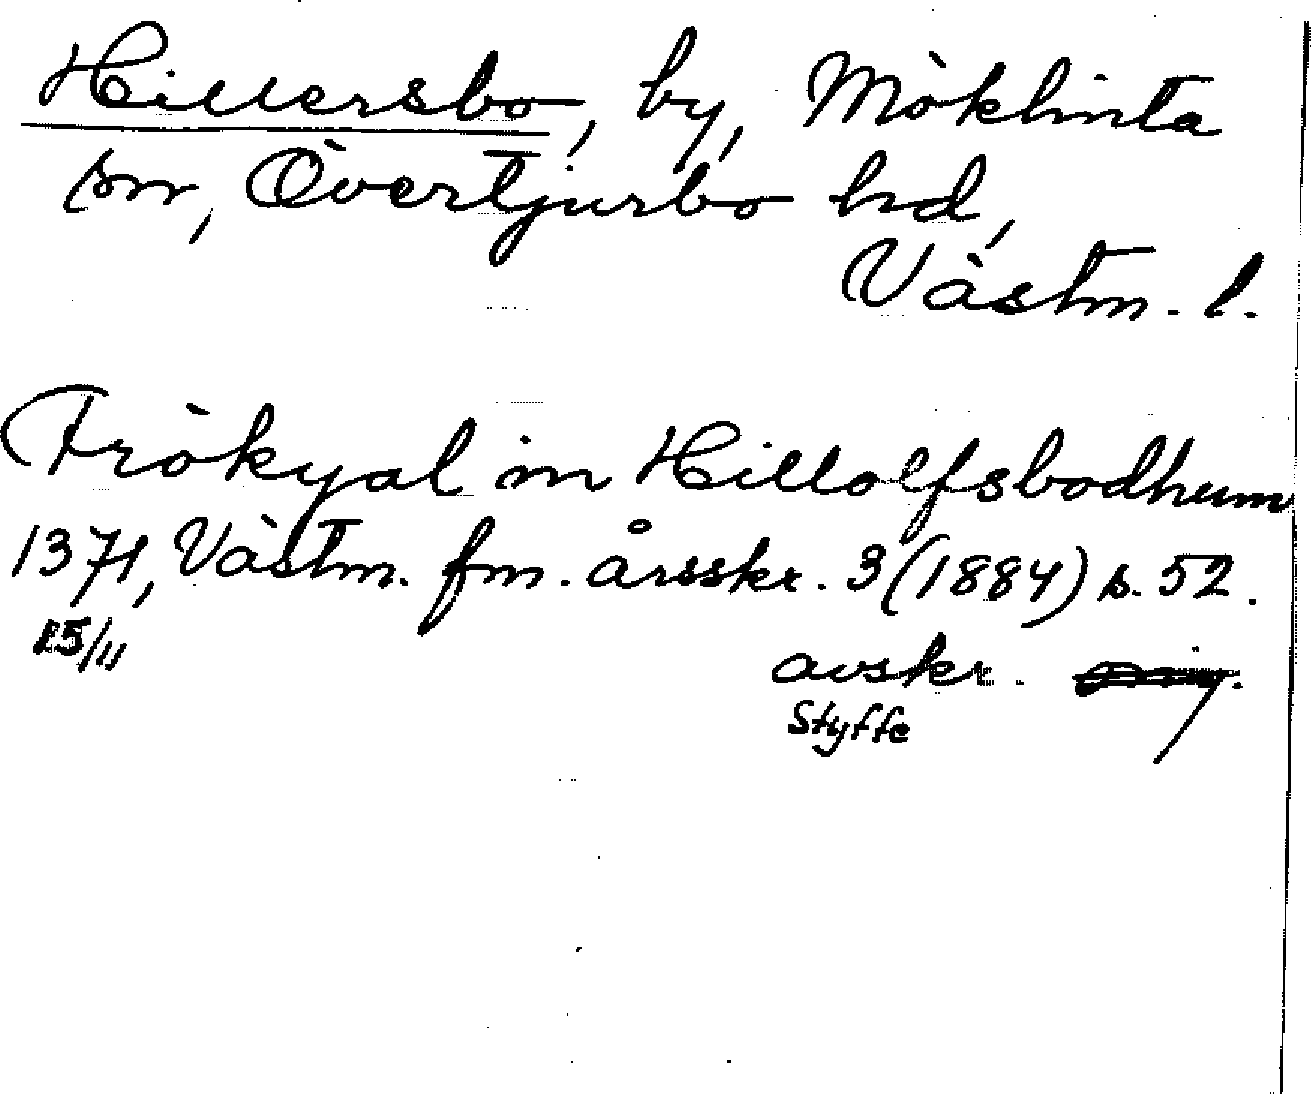 Hillersbo, by, Möklinta
sn, Övertjurbo hd,
Västm. l.
Frökyal in Hillolfsbodhum
1371, Västm. fm. årsskr. 3 (1884) s. 52.
25/11
avskr.
Styffe